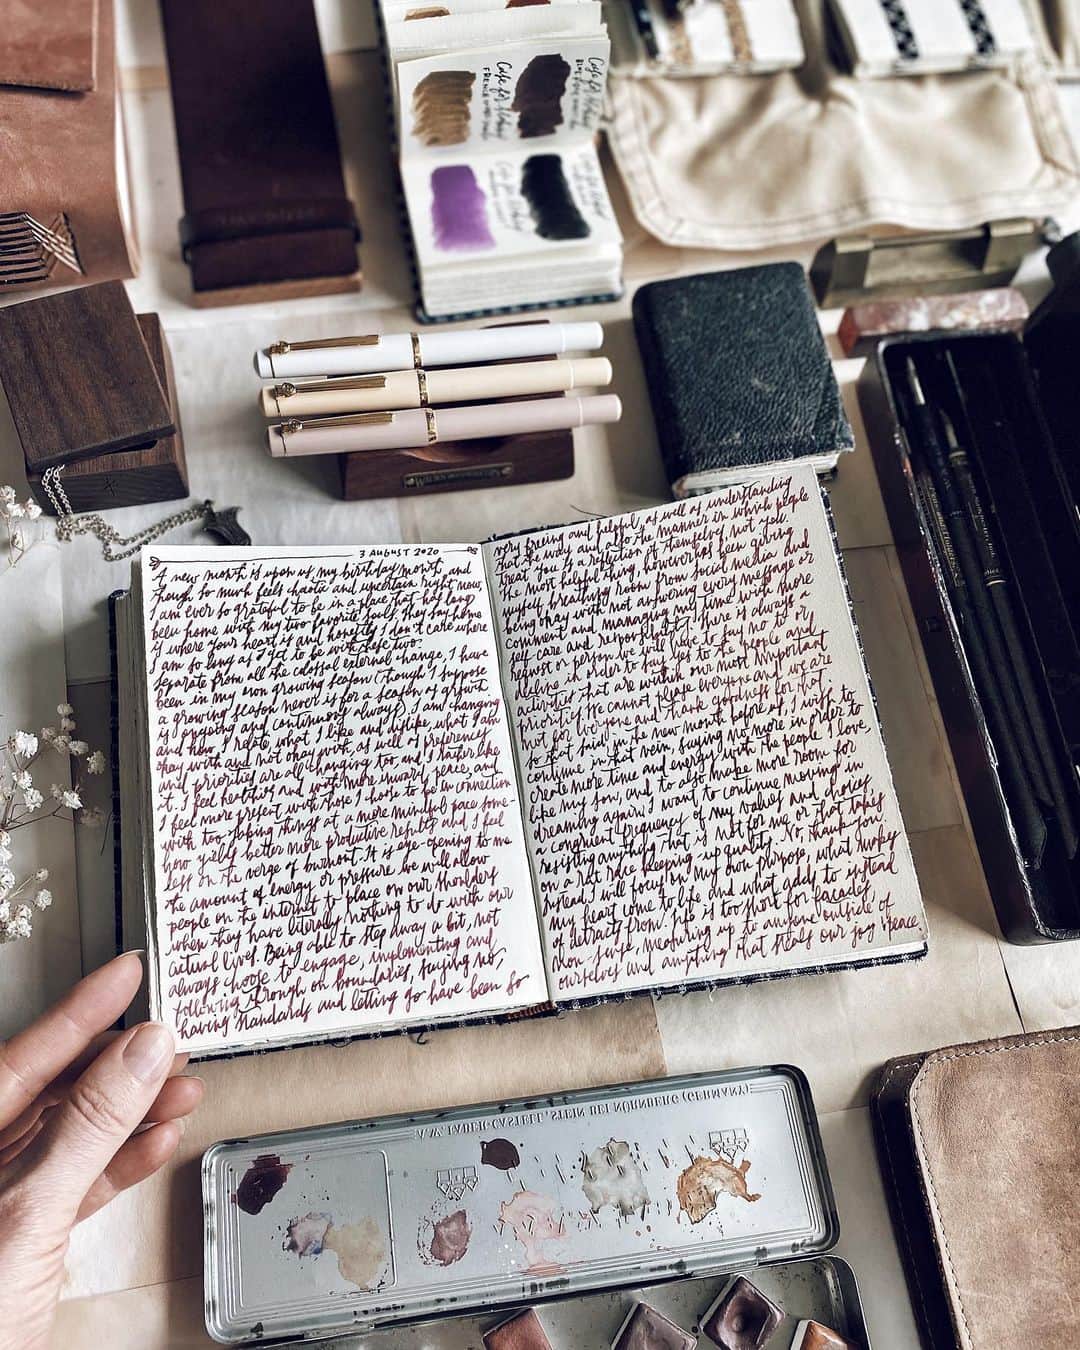 Cafe for
FRENCH
Cafe for
3 AUGUST 2020
A new month is upon us, my birthday month, and
though so much feels chaotic and uncertain right now,
I am ever so grateful to be in a place that has long
been home with my two favorite souls, they say home
is where your heart is and honestly I don't care where
I am so long as I get to be with these two.
Separate from all the colossal external change, I have
been in my own growing season (though I suppose
a growing season never is for a season as growth
is ongoing and continuously always). I am changing
and how I relate, what I like and dislike, what I am
okay with and not okay with, as well as preferences
and priorities are all changing too, and I rather like
it. I feel healthier and with more inward peace, and
I feel more present with those I choose to be in connection
with, too. Doing things at a more mindful pace some-
how yields better more productive results and I feel
less on the verge of burnout. It is eye-opening to me
the amount of energy or pressure we will allow
people on the internet to place on our shoulders
when they have literally nothing to do with our
actual lives. Being able to step away a bit, not
always choose to engage, implementing and
following through on boundaries, saying no,
having standards and letting go have been so
very freeing and helpful, as well as understanding
that the way and also the manner in which people
treat you is a reflection of themselves, not you.
The most helpful thing, however, has been giving
myself breathing room from social media and
being okay with not answering every message or
comment and managing my time with more
self care and responsibility. There is always a
request or person we will have to say no to or
decline in order to say yes to the people and
activities that are within our most important
priorities. We cannot please everyone and we are
not for everyone and thank goodness for that.
So that said, in the new month before us, I wish to
continue in that vein, saying no more in order to
create more time and energy with the people I love,
like my son, and to also make more room for
dreaming again. I want to continue moving in
a congruent frequency of my values and choices,
resisting anything that is not for me or that takes
on a rat race keeping-up quality. No, thank you.
Instead, I will focus on my own purpose, what makes
my heart come to life and what adds to instead
of detracts from. Life is too short for facades,
non-safe, measuring up to anyone outside of
ourselves and anything that steals our joy & peace.
A.W. FABER-CASTELL, STEIN BEI NÜRNBERG (GERMANY)